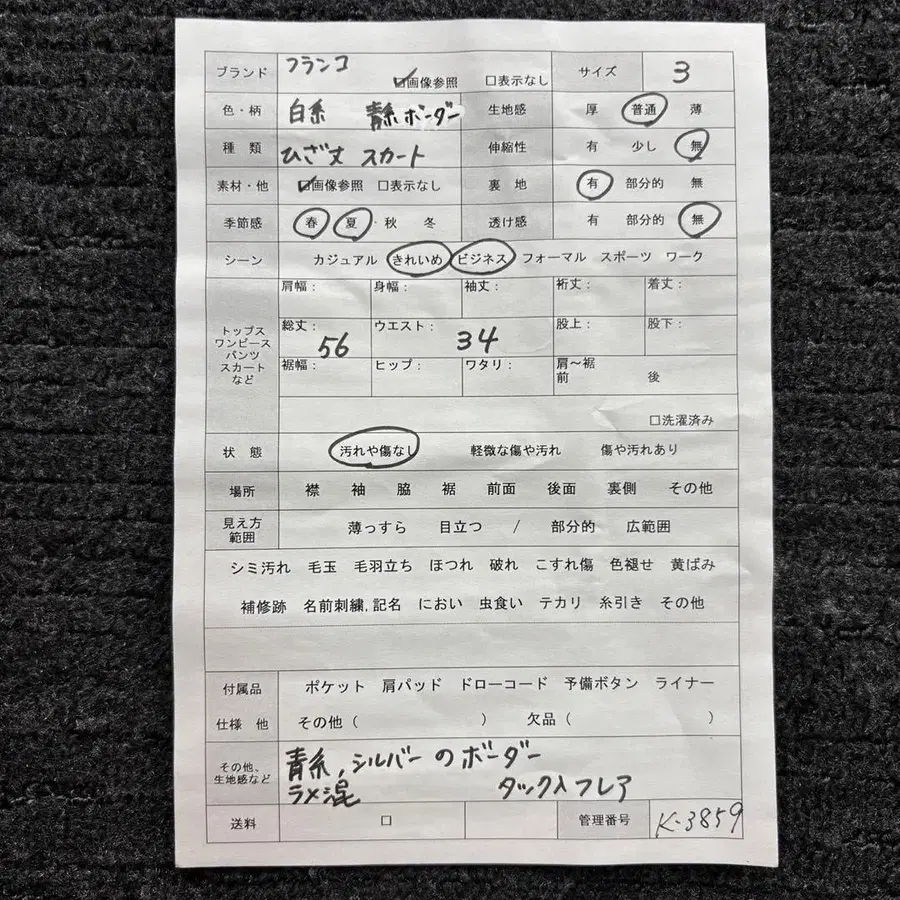 ブランド フランコ ☑画像参照 □表示なし サイズ 3
色・柄 白系 青系 ボーダー 生地感 厚 普通 薄
種類 ひざ丈 スカート 伸縮性 有 少し 無
素材・他 ☑画像参照 □表示なし 裏地 有 部分的 無
季節感 春・夏・秋 冬 透け感 有 部分的 無
シーン カジュアル きれいめ ビジネス フォーマル スポーツ ワーク
肩幅： 身幅： 袖丈： 裄丈： 着丈：
トップス
ワンピース
パンツ
スカート
など
総丈： 56 ウエスト： 34 股上： 股下：
裾幅： ヒップ： ワタリ： 肩～裾
前 後
□洗濯済み
状態 汚れや傷なし 軽微な傷や汚れ 傷や汚れあり
場所 襟 袖 脇 裾 前面 後面 裏側 その他
見え方
範囲
薄っすら 目立つ / 部分的 広範囲
シミ汚れ 毛玉 毛羽立ち ほつれ 破れ こすれ傷 色褪せ 黄ばみ
補修跡 名前刺繍,記名 におい 虫食い テカリ 糸引き その他
付属品 ポケット 肩パッド ドローコード 予備ボタン ライナー
仕様 他 その他（ ） 欠品（ ）
その他、
生地感など
青系，シルバーのボーダー
ラメ混 タック入フレア
送料 □ 管理番号 K-3859